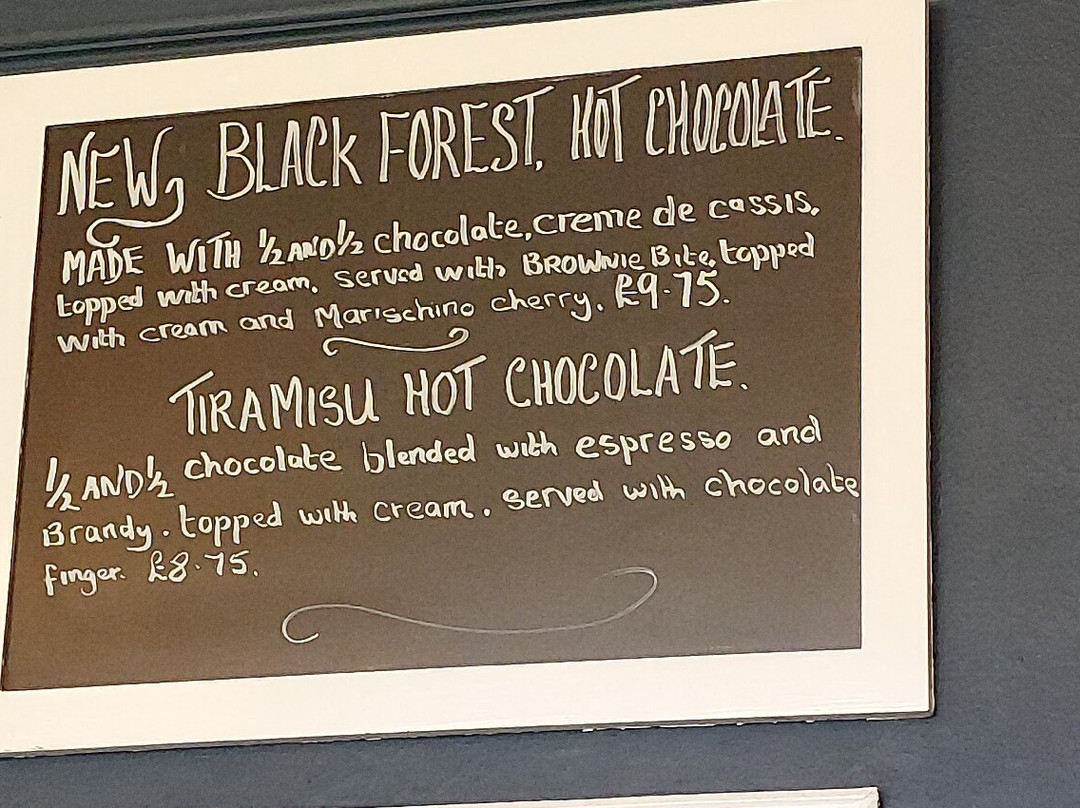 NEW, BLACK FOREST, HOT CHOCOLATE.
MADE WITH ½ AND ½ chocolate, creme de cassis.
topped with cream. served with BROWNIE Bite, topped
with cream and Marischino cherry. £9.75.
TIRAMISU HOT CHOCOLATE.
½ AND ½ chocolate blended with espresso and
Brandy. topped with cream. served with chocolate
finger. £8.75.